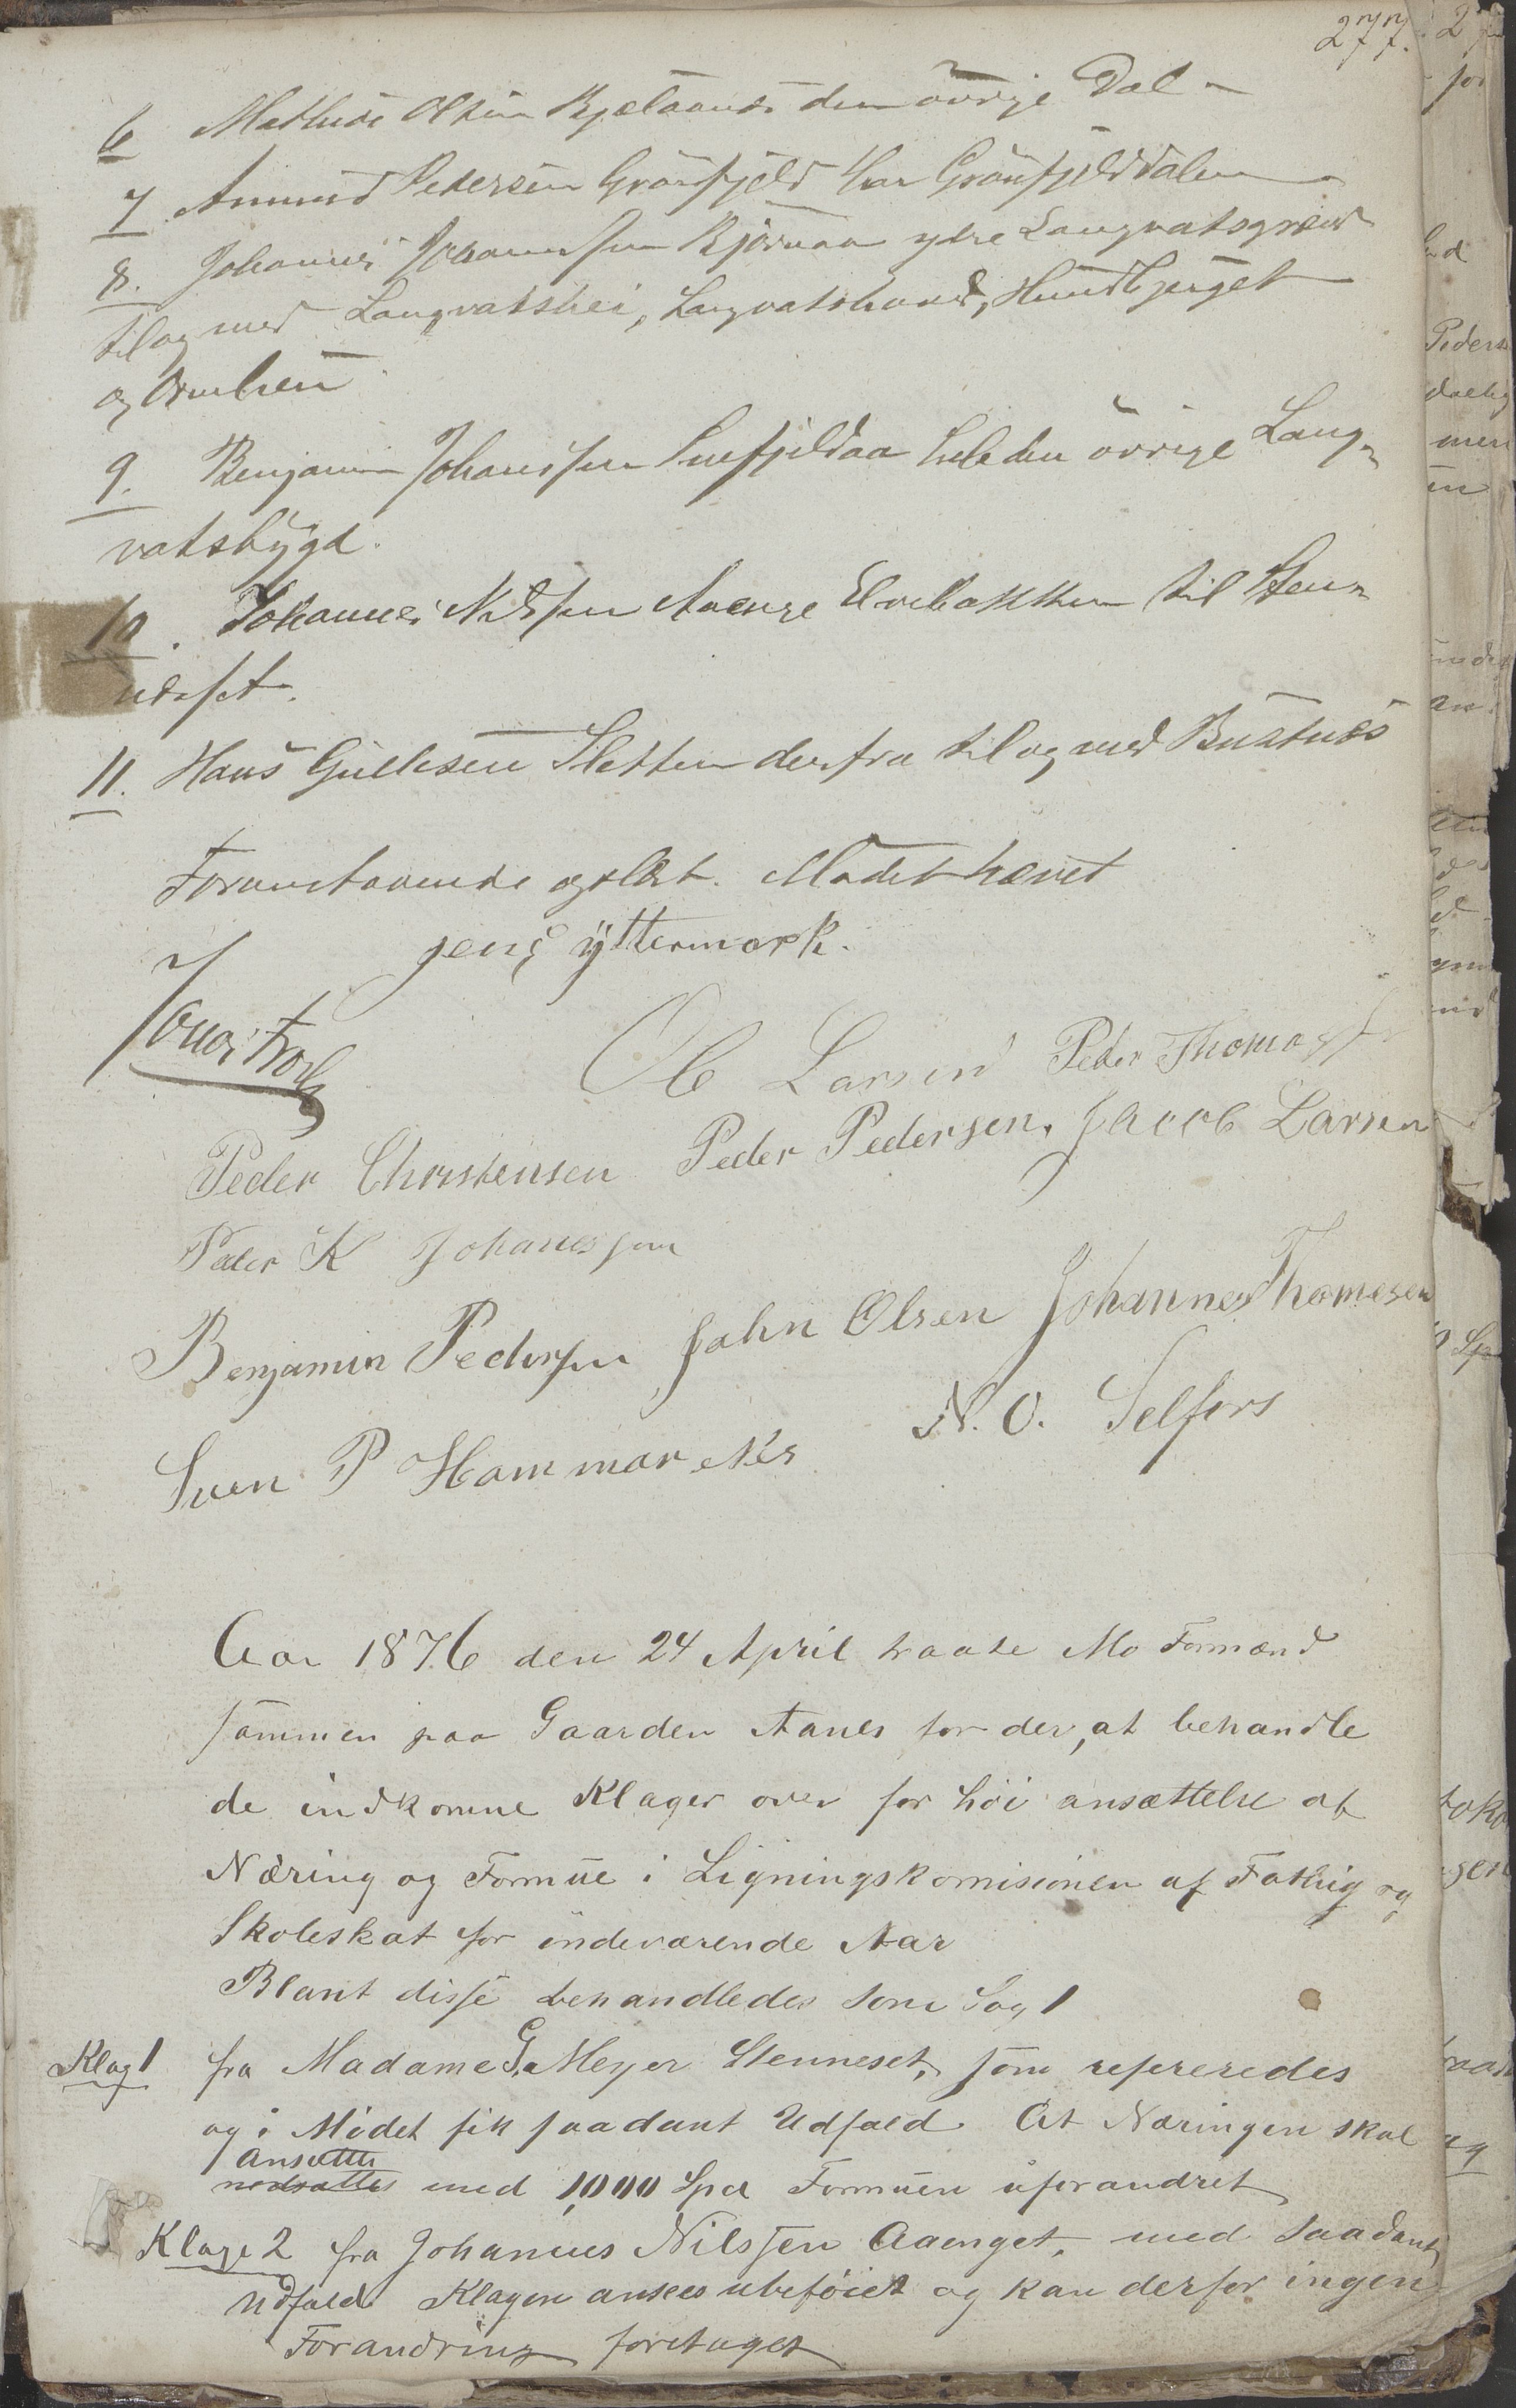 277.
6 Mathias Olsen Bjelaanes den övrige Dal
7. Amund Pedersen Grönfjeld har Grönfjelddalen
8. Johannes Johannssen Bjørnaa ydre Langvatsgrænd
til og med Langvatshei, Langvatshaug, Hundbjerget
og
9. Benjamin Johanssen Snefjeldaa hele den övrige Lang-
vatsbygd.
10. Johannes Nilssen Aaenge Elvebakken til Sten-
nesset.
11. Hans Gullesen Sletten derfra til og med Bustnes
Foranstaaende oplæst. Mødet hævet
jens yttermork.
Ole Larsen Peder Thomass
Peder Christensen Peder Pedersen. Jacob Larsen
Peder K Johanessen
Benjamin Pedersen John Olsen Johannes Thomesen
Sven P Hammarnes N. O. Selfors
Aar 1876 den 24 April traate Mo Formænd
sammen paa Gaarden Aanes for der, at behandle
de indkomne Klager over for höi ansættelse af
Næring og Formue i Ligningskomisionen af Fattig og
Skoleskat for indeværende Aar
Blant disse behandledes som Sag 1
Klag 1 fra Madame G. Meyer Stenneset, som refereredes
og i Mödet fik saadant Udfald At Næringen skal
ansættes
nedsattes med 1,000 Spd Formuen uforandret
Klage 2 fra Johannes Nilssen Aaenget, med saadant
Udfald Klagen ansees ubeföiet og kan derfor ingen
Forandring foretaget